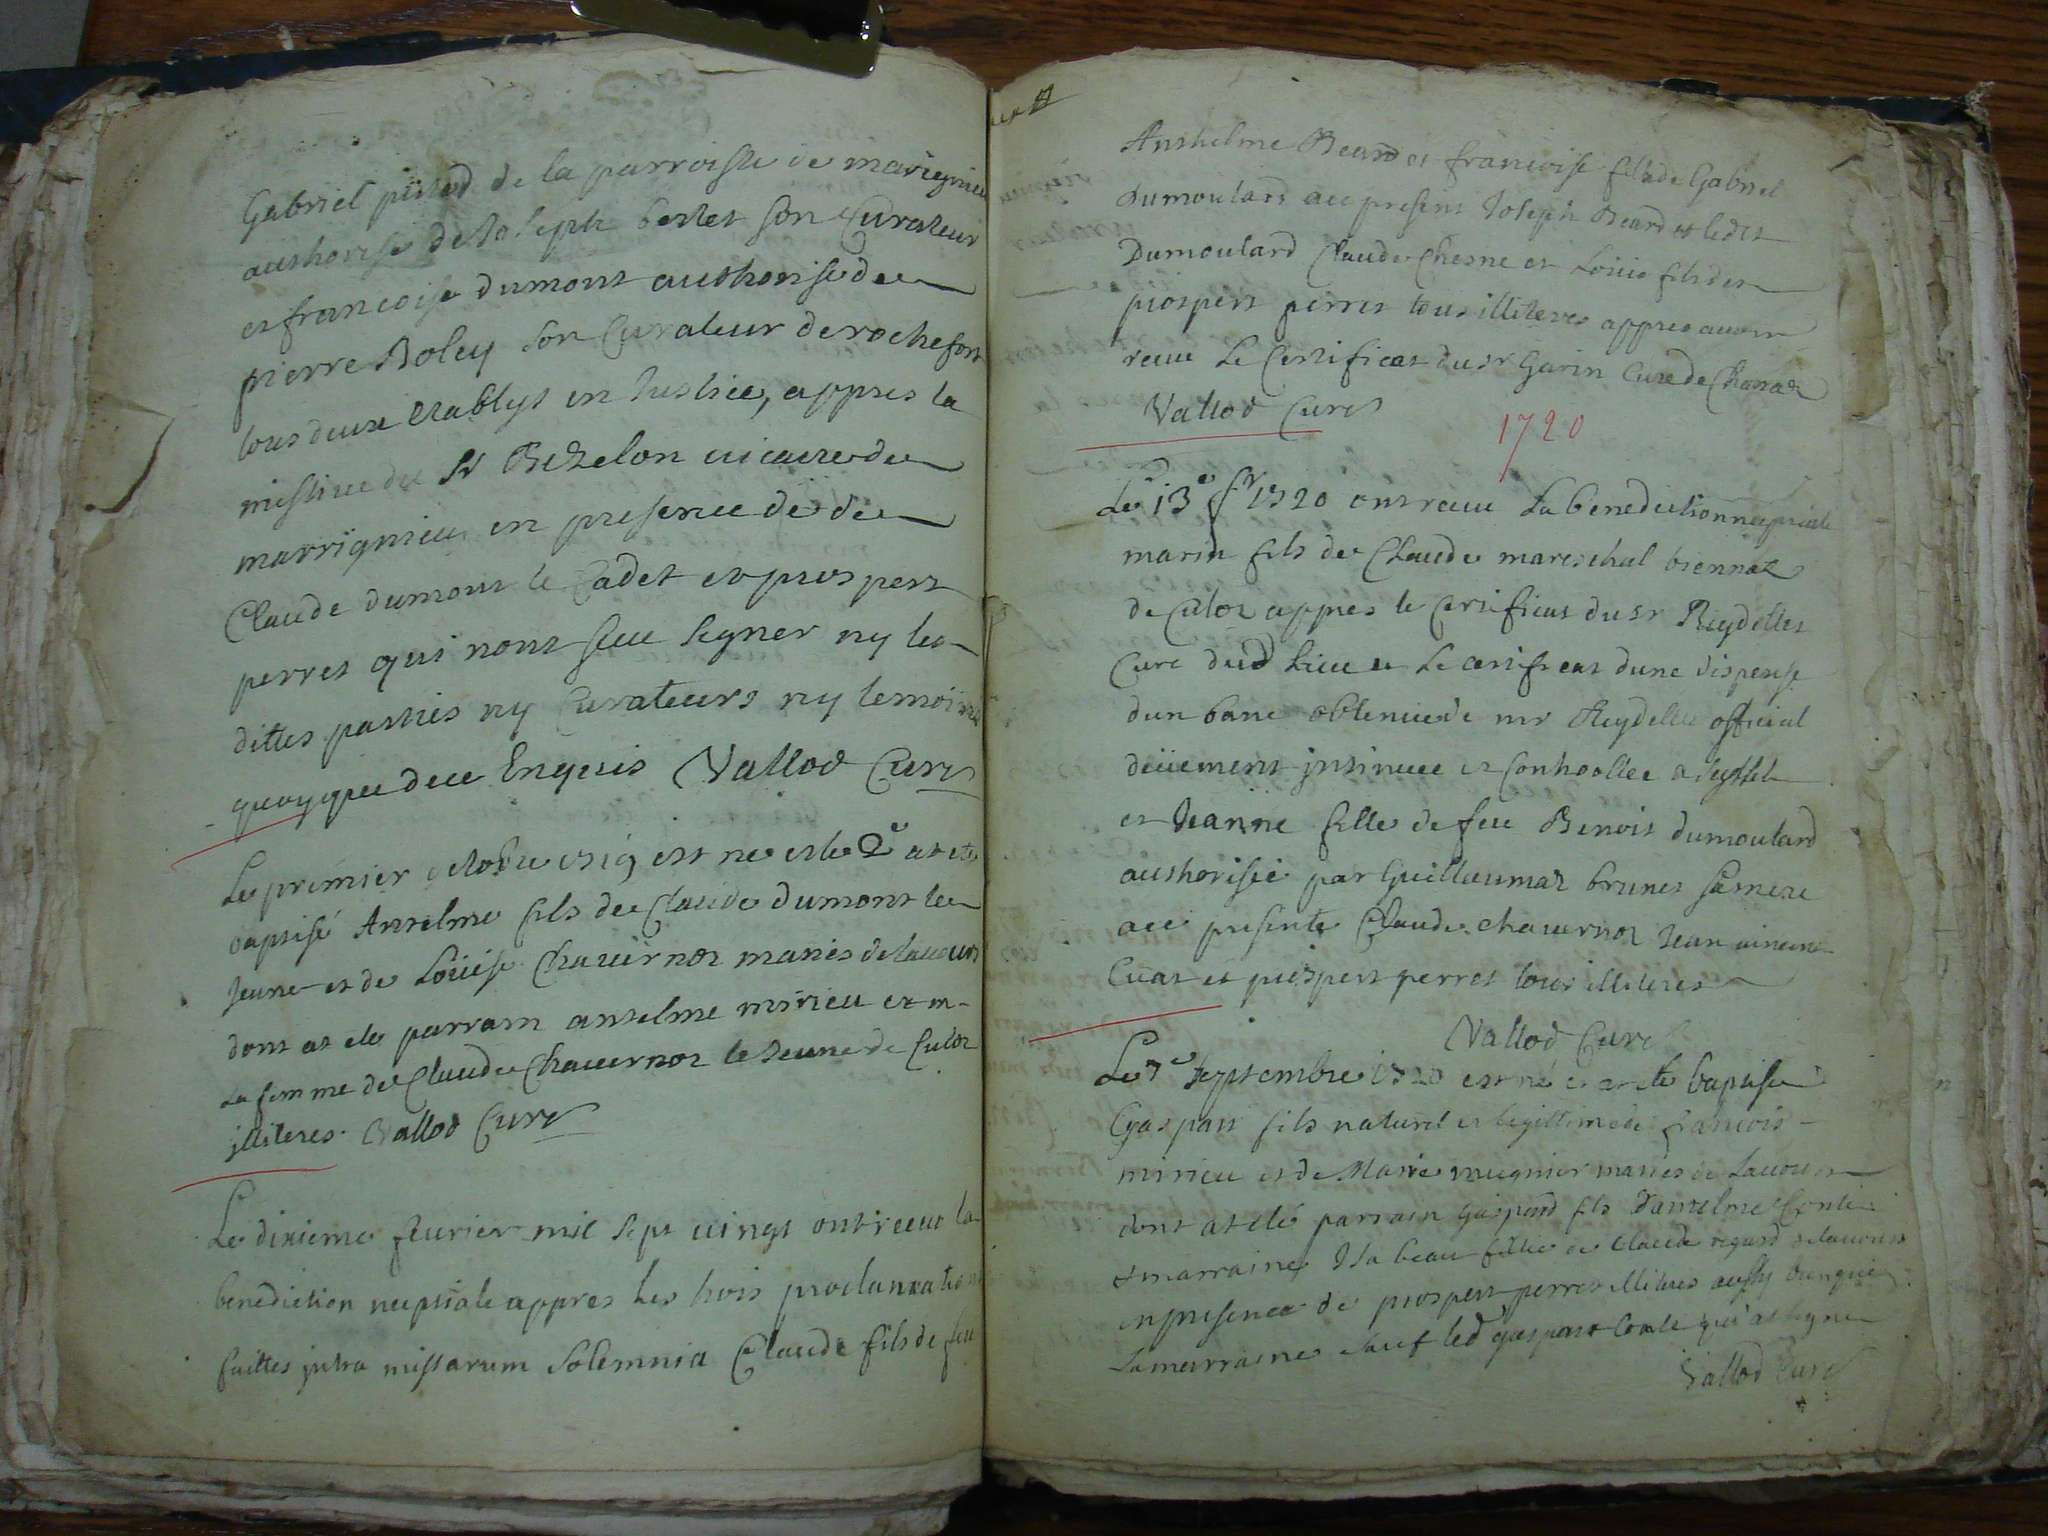 Gabriel pittod de la parroisse de marignieu
authorisé de Joseph bertet son Curateur
et francoise dumont authorisé de
pierre Boley son Curateur de rochefort
tous deux etablys en Justice, appres la
du Sr Bizelon vicaire de
marrignieu en presence de de
Claude dumont le Cadet et prospert
perret qui nont sceu signer ny les
dittes parties ny Curateurs ny temoins
quoyque de ce Enquis Vallod Curé
Le premier octobre 1719 est né et le 2e at ete
baptisé Anselme fils de Claude dumont le
Jeune et de Loüise Chauürnoz mariés de lauours
dont at ete parrain anselme mirieu et m-
la femme de Claude Chauernoz le Jeune de Culoz
illiteres. Vallod Curé
Le dixieme feurier mil sept vingt ont receu la
benediction nuptiale appres les trois proclamations
faittes intra missarum Solemnia Claude fils de feu
Anthelme Beard et francoise fille de Gabriel
dumoulard ace present Joseph Beard et ledit
Dumoulard Claude Chesne et Loüis fils de
prospert perret tous illiteres appres auoir
receu Le Certificat du sr Garin Curé de Chanaz
Vallod Curé
1720
Le 13e fr 1720 ont receu La benediction nuptiale
marin fils de Claude mareschal biennaz
de Culoz appres le Certificat du sr Reydellet
Curé dud Lieu et Le certificat dune dispense
dun banc obtenue de mr Reydellet official
düement insinuee et Controollee a seyssel
et Jeanne fille de feu Benoit dumoulard
authorisée par Guillaumaz brunet sa mere
ace presente Claude chauernoz Jean vincent
Cuat et prospert perret tous illiteres
Vallod Curé
Le 7e septembre 1720 est né et at ete baptisé
Gaspart fils naturel et legittime de francois
mirieu et de Marie mugnier mariés de Lauours
dont at eté parrain gaspard fils Danselme Conte
et marraine Isabeau fillie de Claude regard de lauours
en presence de prospert perret illiteres aussy bien que
la marraine sauf led gaspart Conte qui at signé
Vallod Curé